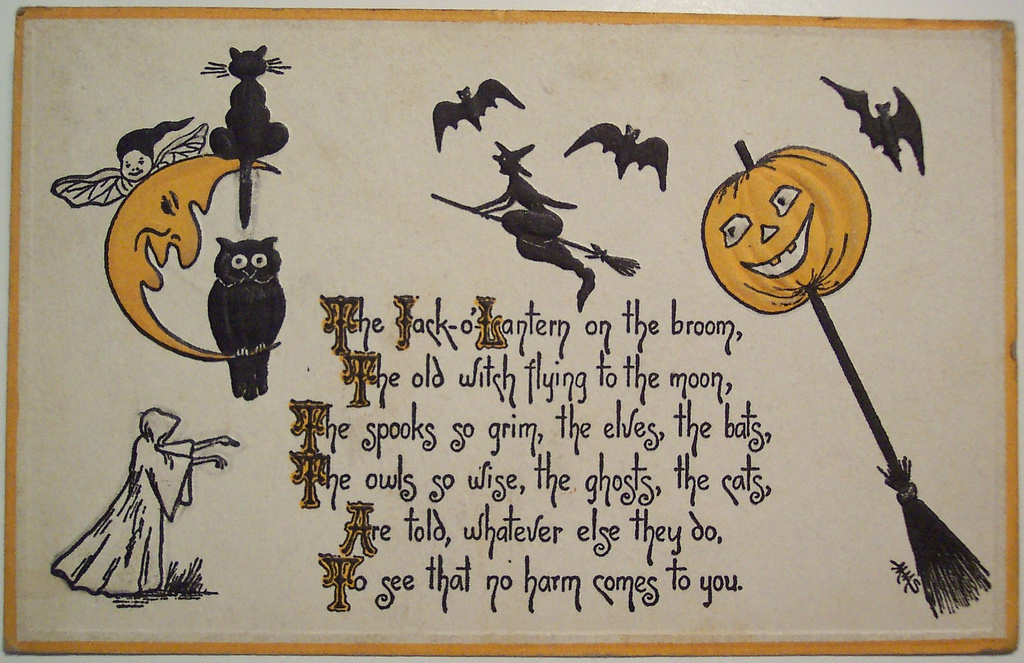 The Jack-o'Lantern on the broom,
The old witch flying to the moon,
The spooks so grim, the elves, the bats,
The owls so wise, the ghosts, the cats,
Are told, whatever else they do,
To see that no harm comes to you.